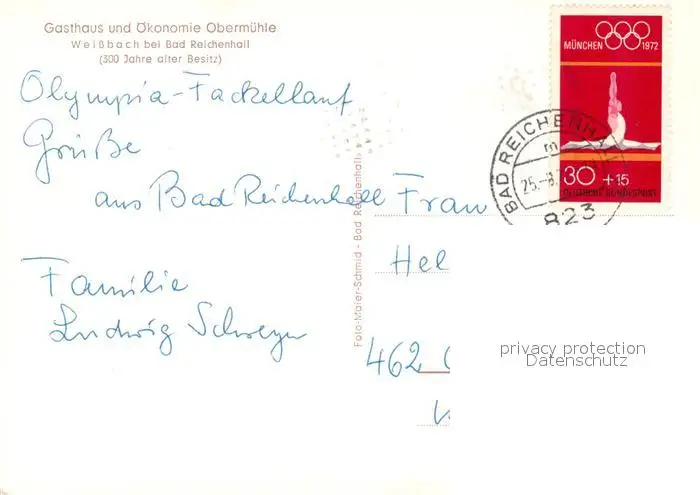 Gasthaus und Ökonomie Obermühle
Weißbach bei Bad Reichenhall
(300 Jahre alter Besitz)
MÜNCHEN 1972
30 +15
DEUTSCHE BUNDESPOST
BAD REICHENHALL
m
25.-8.
823
Olympia-Fackellauf
Grüße
aus Bad Reichenhall
Familie
Ludwig
Foto-Maier-Schmid - Bad Reichenhall
Frau
Hel
462
privacy protection
Datenschutz